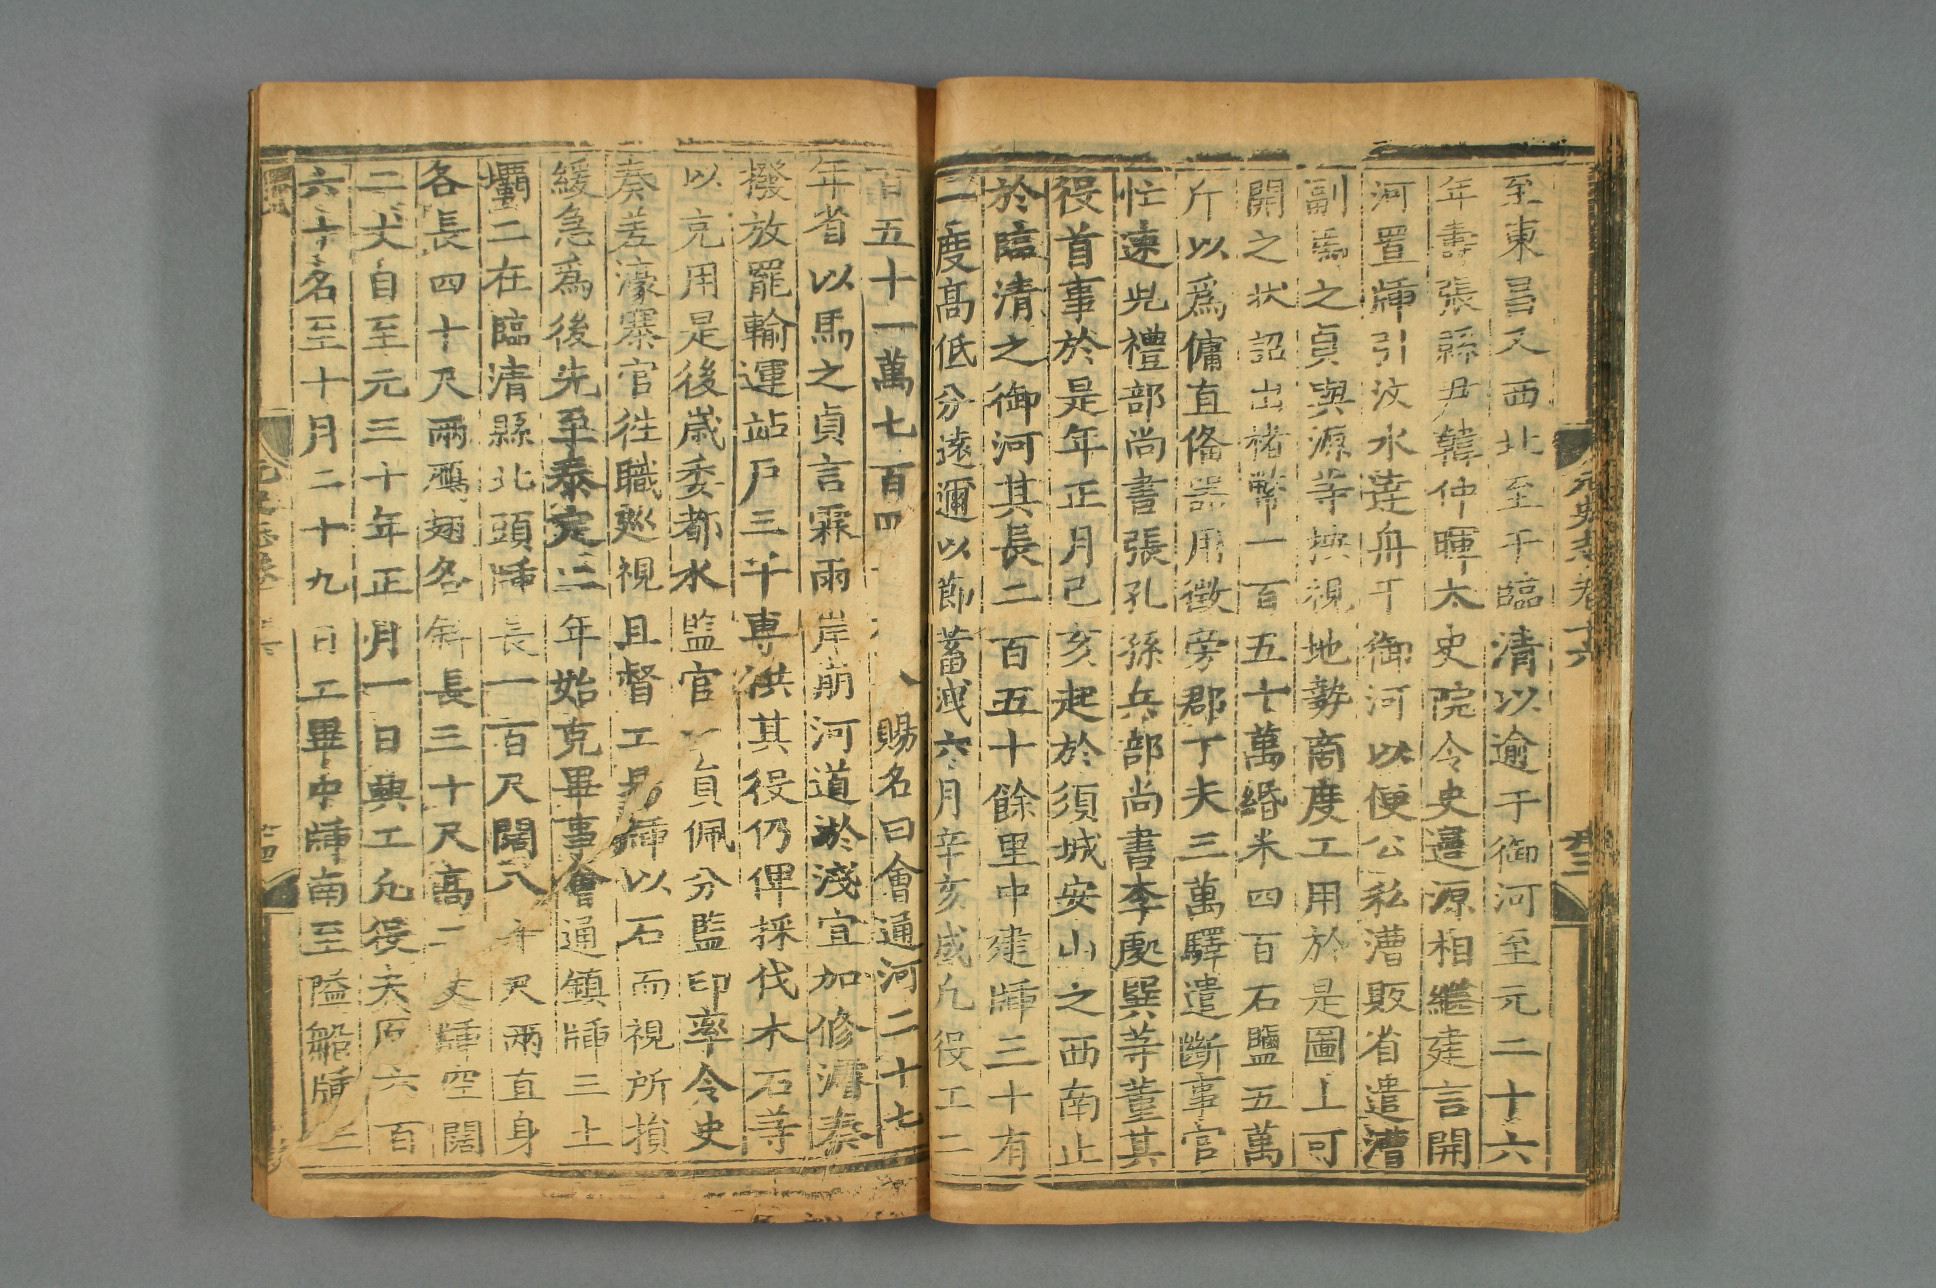 元史志卷十六
至東昌又西北至于臨清以逾于御河至元二十六
年壽張縣尹韓仲暉太史院令史邉源相繼建言開
河置牐引汶水達舟于御河以便公私漕販省遣漕
副馬之貞與源等按視地勢商度工用於是圖上可
開之狀詔出楮幣一百五十萬緡米四百石鹽五萬
斤以爲傭直俻器用徵旁郡丁夫三萬驛遣斷事官
忙速皃禮部尚書張孔孫兵部尚書李處巽等董其
役首事於是年正月己亥起於須城安山之西南止
於臨清之御河其長二百五十餘里中建牐三十有
一度髙低分逺邇以節蓄洩六月辛亥成凢役工二
百五十一萬七百四 八賜名曰會通河二十七
年省以馬之貞言霖雨岸崩河道淤淺宜加修濬奏
撥放罷輸運站戶三千専洪其役仍俾採伐木石等
以充用是後歲委都水監官一員佩分監印率令史
奏差濠寨官徃職廵視且督工易牐以石而視所損
緩急爲後先至泰定二年始克畢事會通鎮牐三土
壩二在臨清縣北頭牐長一百尺闊八十尺兩直身
各長四十尺兩鴈翅各斜長三十尺髙二丈牐空闊
二丈自至元三十年正月一日興工凢役夫匠六百
六十名至十月二十九日工畢中牐南至隘船牐三